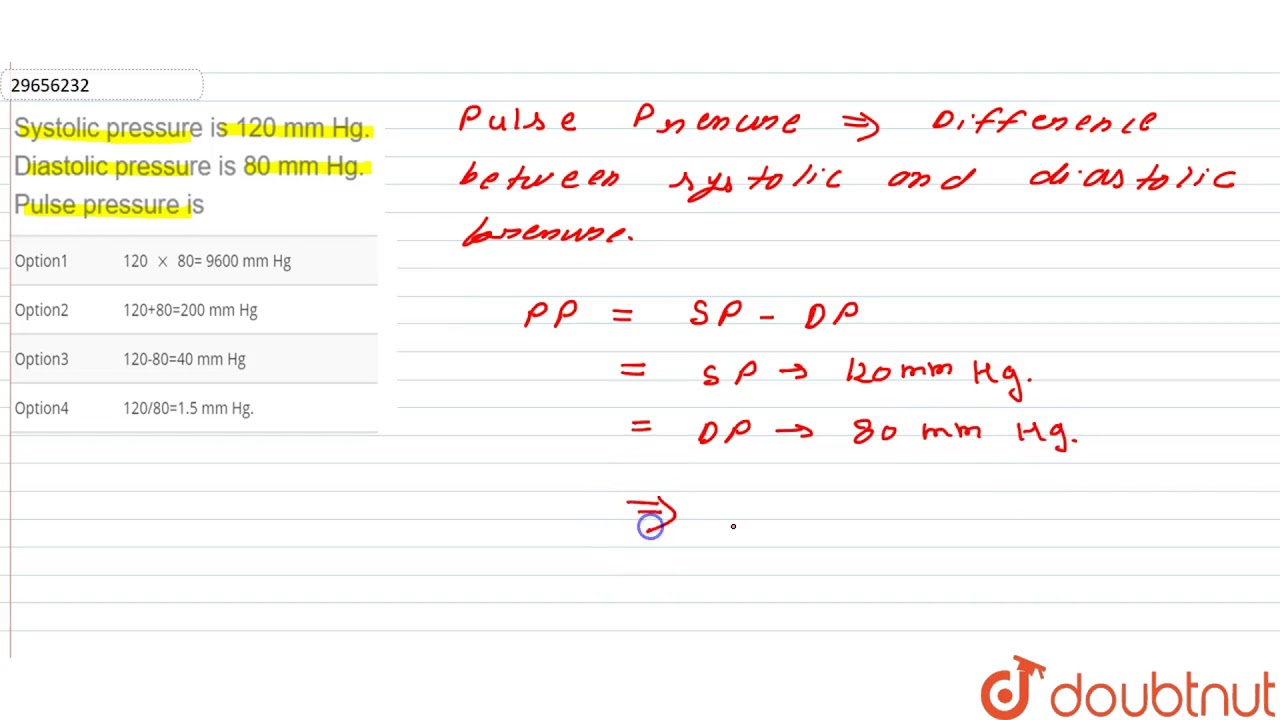 29656232
Systolic pressure is 120 mm Hg.
Diastolic pressure is 80 mm Hg.
Pulse pressure is
Option1 120 × 80= 9600 mm Hg
Option2 120+80=200 mm Hg
Option3 120-80=40 mm Hg
Option4 120/80=1.5 mm Hg.
Pulse Pressure ⇒ Difference
between systolic and diastolic
pressure.
PP = SP - DP
= SP → 120 mm Hg.
= DP → 80 mm Hg.
⇒
doubtnut